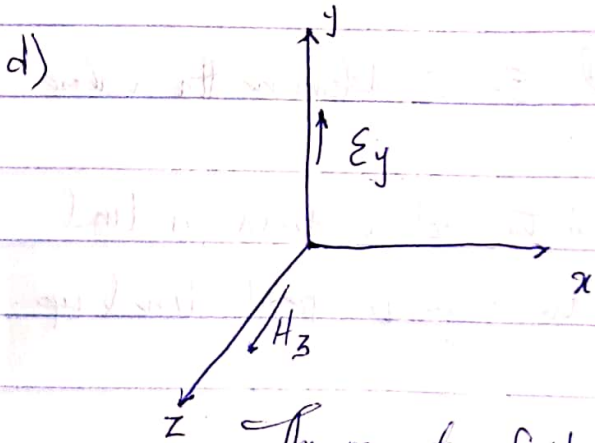 d)
y
Ey
x
H3
z